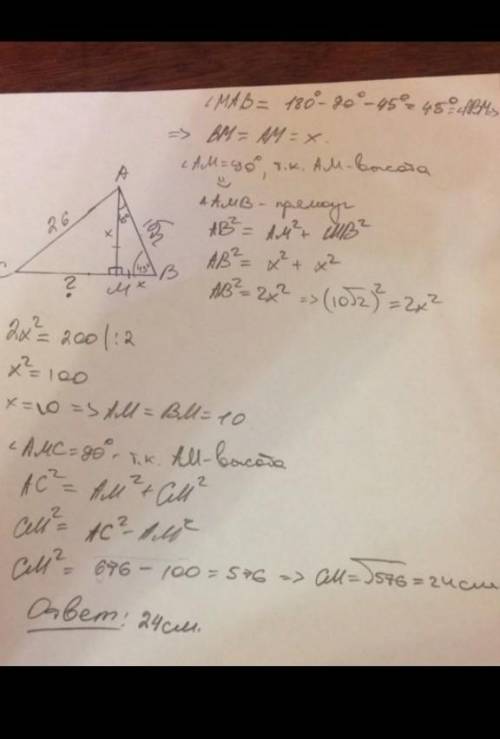 ∠MAB = 180° - 90° - 45° = 45° = ∠ABM ⇒
⇒ BM = AM = x.
∠AM = 90°, т.к. AM - высота
⇓
△AMB - прямоуг
AB² = AM² + MB²
AB² = x² + x²
AB² = 2x² ⇒ (10√2)² = 2x²
A
26
x
10√2
C
?
M
x
45°
B
2x² = 200 | :2
x² = 100
x = 10 => AM = BM = 10
∠AMC = 90° - т.к. AM - высота
AC² = AM² + CM²
CM² = AC² - AM²
CM² = 676 - 100 = 576 => CM = √576 = 24 см
Ответ: 24 см.